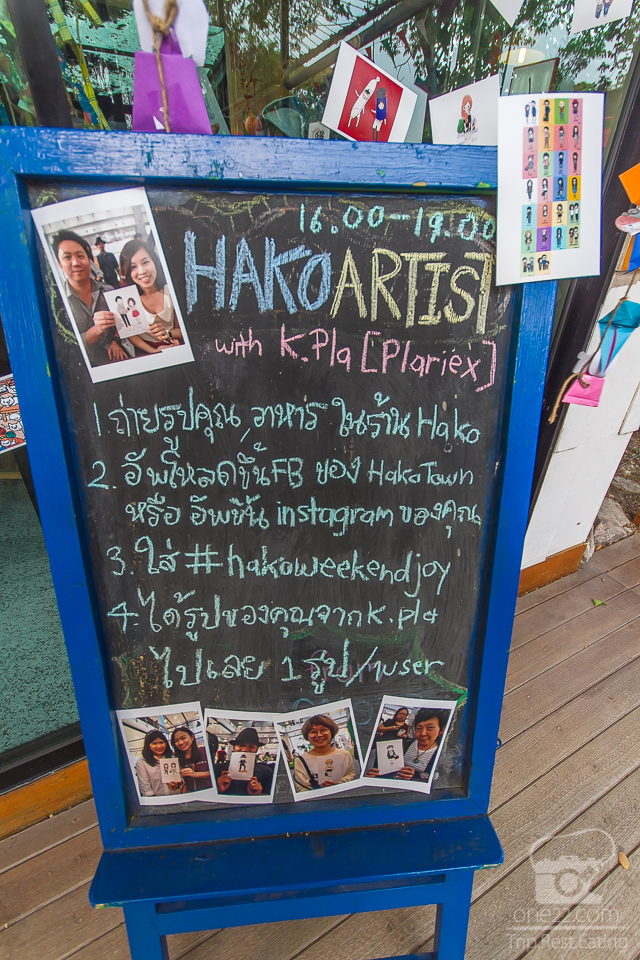 16.00-19.00
HAKO ARTIST
with K.Pla [Plariex]
1.ถ่ายรูปคุณ,อาหาร ในร้าน Hako
2. อัพโหลดขึ้นFB ของ HakoTown
หรือ อัพขึ้น instagram ของคุณ
3. ใส่ #hakoweekendjoy
4. ได้รูปของคุณจากK.pla
ไปเลย 1 รูป/1user
one22.com
Trip.Rest.Eating